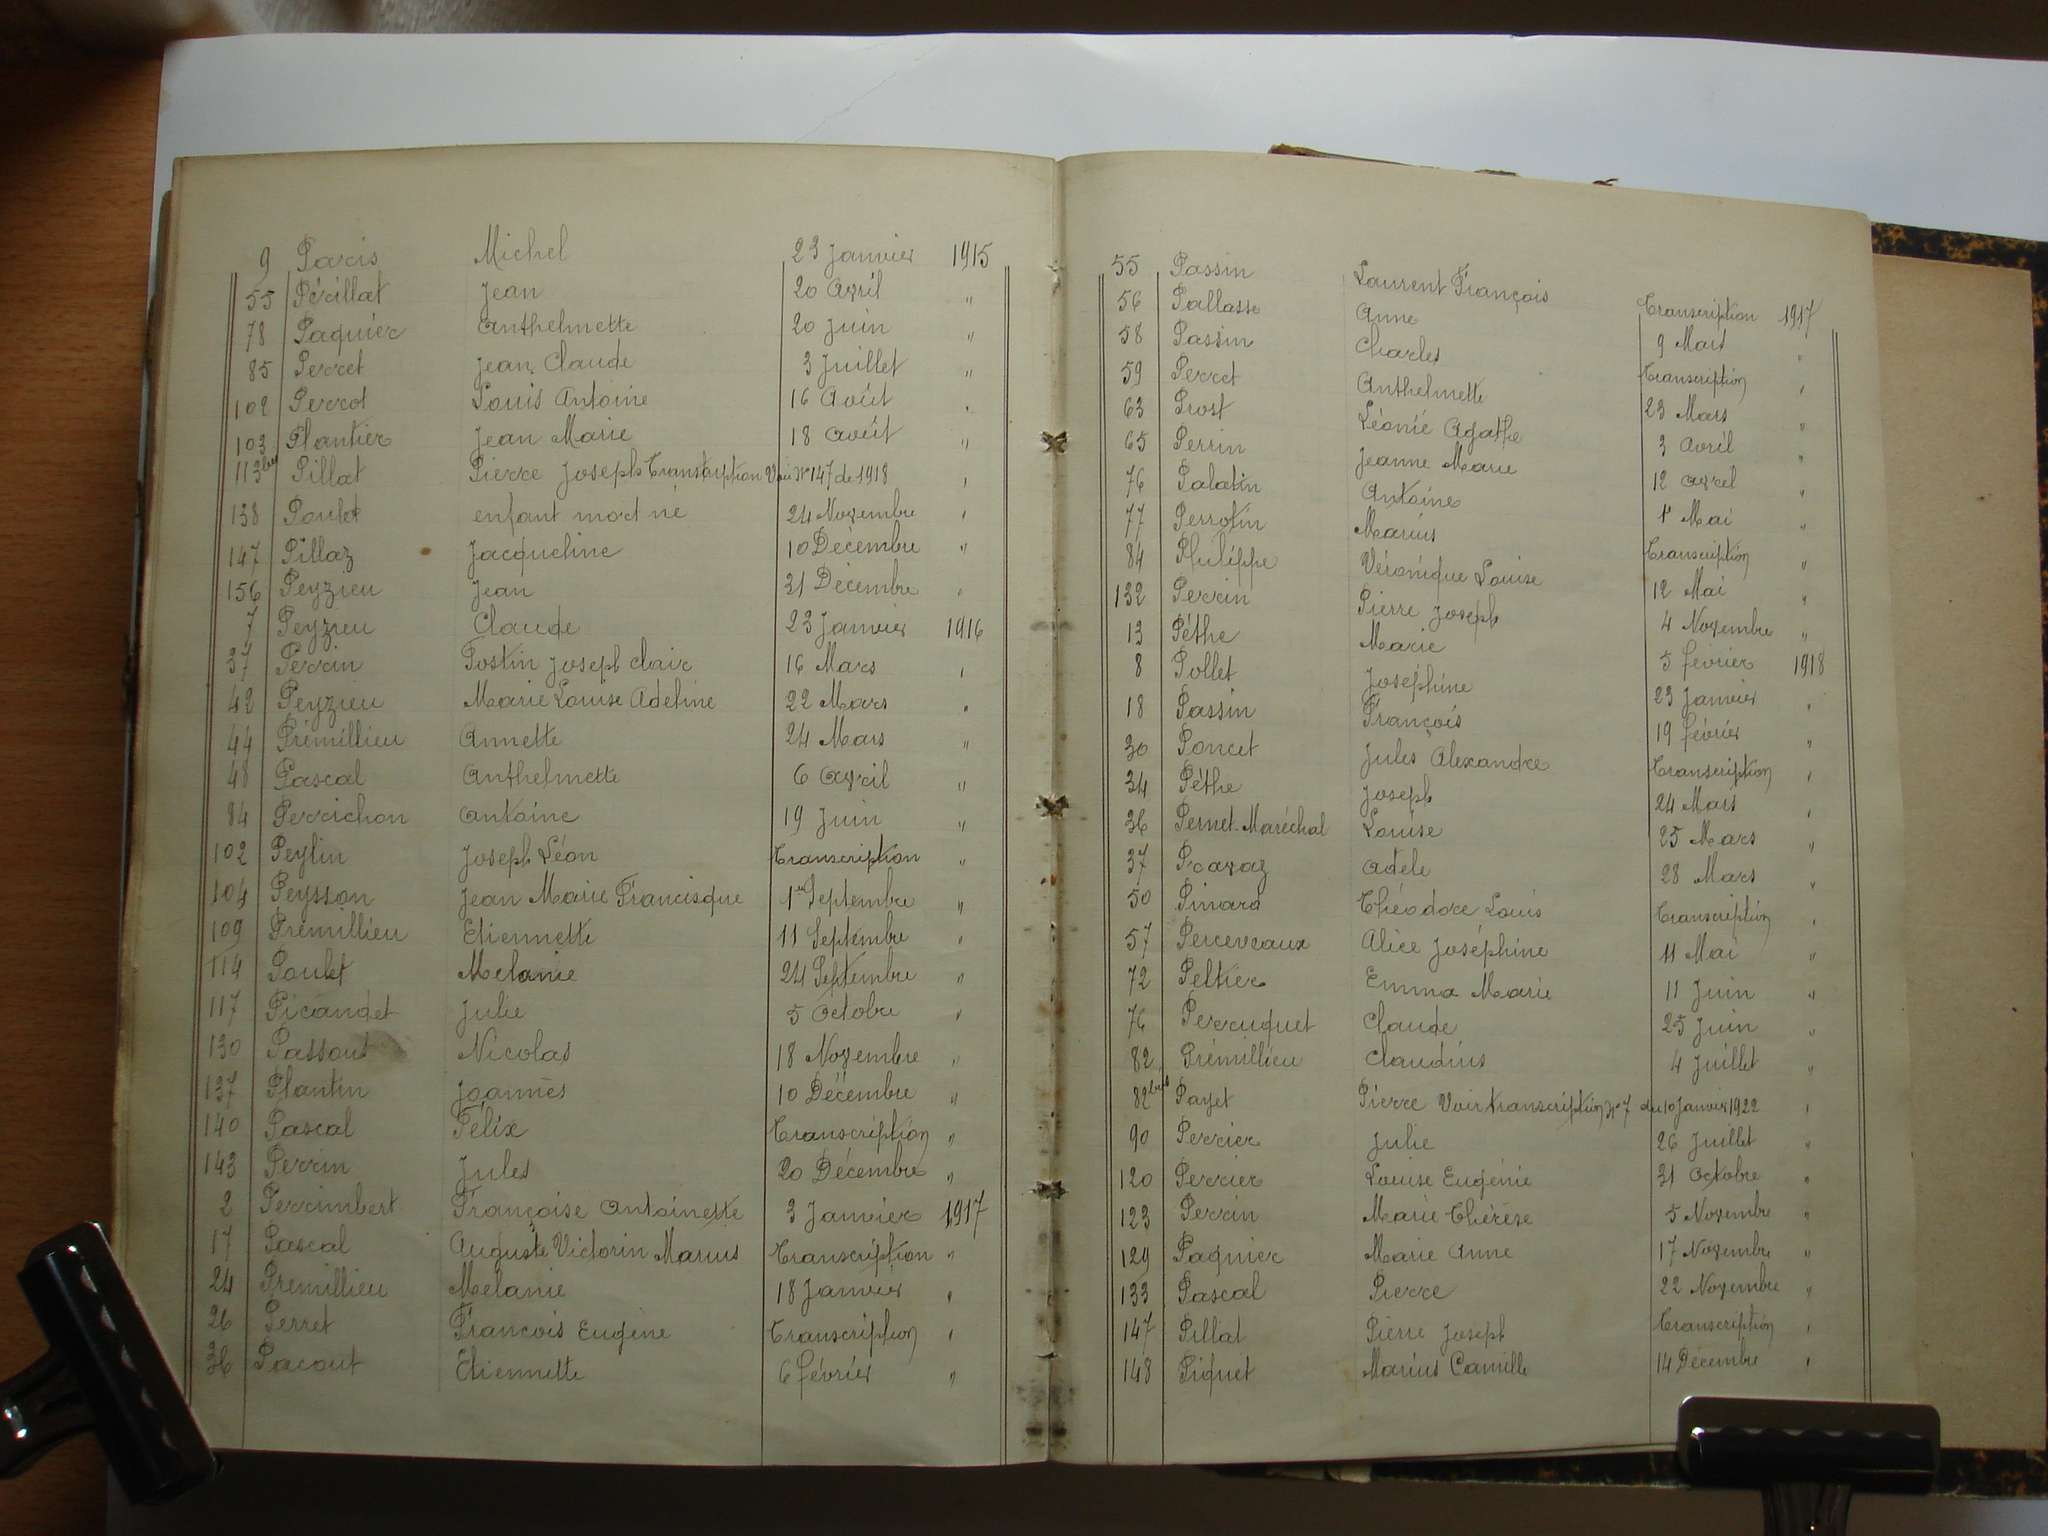 9 Paris Michel 23 Janvier 1915
55 Périllat Jean 20 Avril "
78 Paquier Anthelmette 20 Juin "
85 Perret Jean Claude 3 Juillet "
102 Perrot Louis Antoine 16 Août "
103 Plantier Jean Marie 18 Août "
113bis Pillat Pierre Joseph Transcription Voir N° 147 de 1918 "
138 Poulet enfant mort né 24 Novembre "
147 Pillaz Jacqueline 10 Décembre "
156 Peyzieu Jean 31 Décembre "
7 Peyzieu Claude 23 Janvier 1916
37 Perrin Postin Joseph Clair 16 Mars "
42 Peyzieu Marie Louise Adeline 22 Mars "
44 Prémillieu Annette 24 Mars "
48 Pascal Anthelmette 6 Avril "
84 Perrichon Antoine 19 Juin "
102 Peylin Joseph Léon Transcription "
104 Peysson Jean Marie Francisque 1er Septembre "
109 Prémillieu Etiennette 11 Septembre "
114 Poulet Melanie 24 Septembre "
117 Picandet Julie 5 Octobre "
130 Nicolas 18 Novembre "
137 Plantin Joannès 10 Décembre "
140 Pascal Félix Transcription "
143 Perrin Jules 20 Décembre "
2 Perrimbert Françoise Antoinette 3 Janvier 1917
17 Pascal Auguste Victorin Marius Transcription "
24 Premillieu Melanie 18 Janvier "
26 Perret François Eugène Transcription "
36 Pacout Etiennette 6 février "
55 Passin Laurent François Transcription 1917
56 Pallasse Anne 9 Mars "
58 Passin Charles Transcription "
59 Perret Anthelmette 23 Mars "
63 Prost Léonie Agathe 3 Avril "
65 Perrin Jeanne Marie 12 Avril "
76 Palatin Antoine 1er Mai "
77 Perrotin Marius Transcription "
84 Philippe Véronique Louise 12 Mai "
132 Perrin Pierre Joseph 4 Novembre "
13 Péthe Marie 5 février 1918
8 Pollet Joséphine 23 Janvier "
18 Passin François 19 février "
30 Poncet Jules Alexandre Transcription "
34 Péthe Joseph 24 Mars "
36 Pernet-Maréchal Louise 25 Mars "
37 Pravaz Adèle 28 Mars "
50 Pinard Théodore Louis Transcription "
57 Perceveaux Alice Joséphine 11 Mai "
72 Peltier Emma Marie 11 Juin "
76 Perruquet Claude 25 Juin "
82 Prémillieu Claudius 4 Juillet "
82bis Payet Pierre Voir transcription N° 7 du 10 Janvier 1922 "
90 Perrier Julie 26 Juillet "
120 Perrier Louise Eugénie 31 Octobre "
123 Perrin Marie Thérèse 5 Novembre "
129 Paquier Marie Anne 17 Novembre "
133 Pascal Pierre 22 Novembre "
147 Pillat Pierre Joseph Transcription "
148 Piquet Marius Camille 14 Décembre "